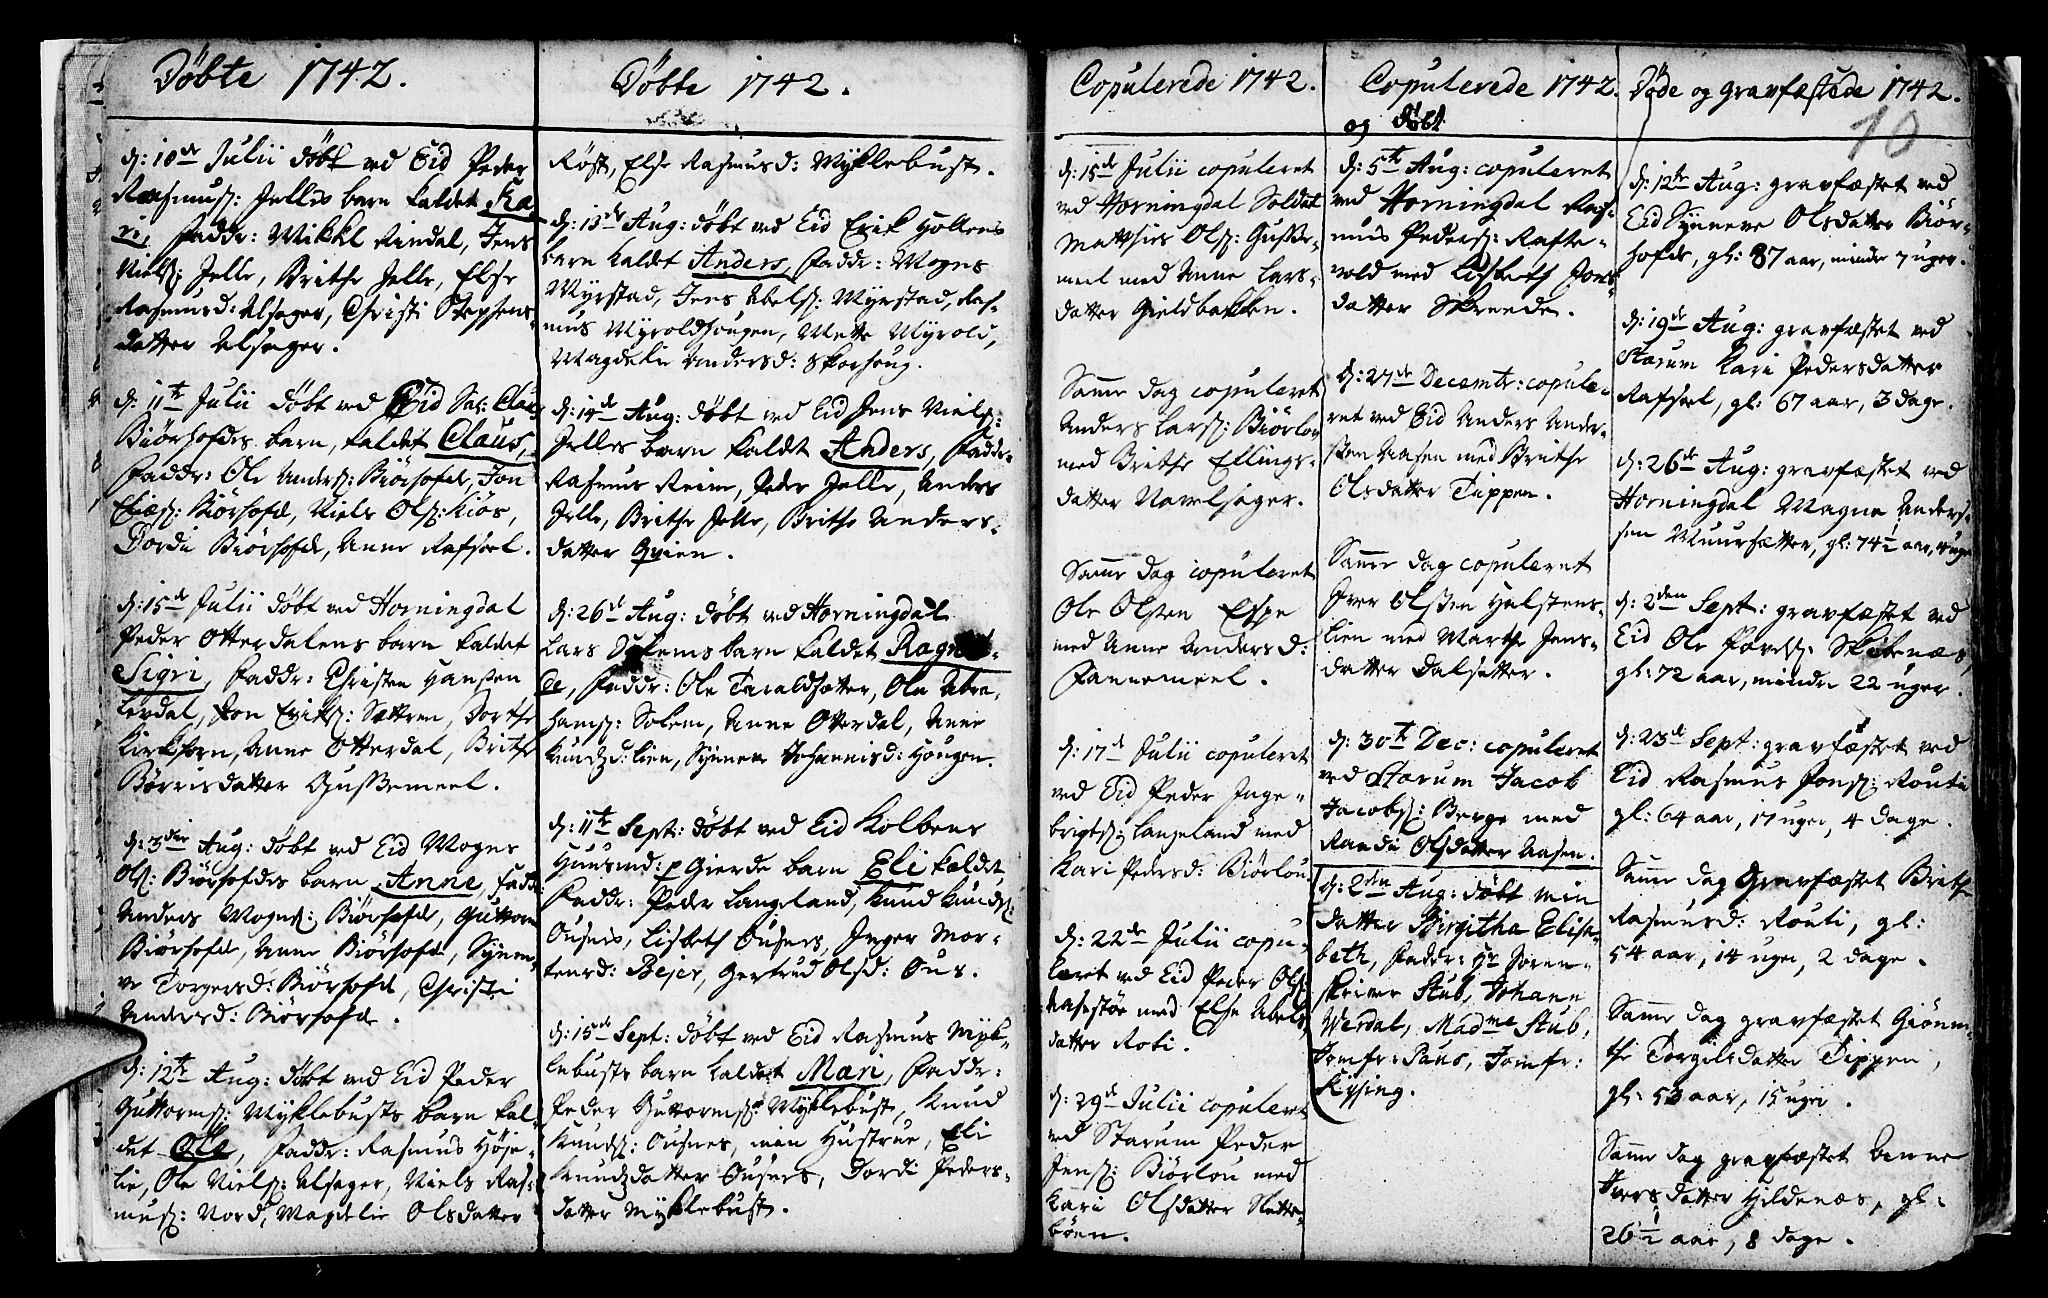 Døbte 1742.
d: 10de Julii døbt ved Eid Peder
Rasmuss: Jelles barn kaldet Ka-
ri, Faddr: Mikkl Rindal, Jens
Niels: Jelle, Brithe Jelle, Else
Rasmusd: Alsager, Christi Stephens-
datter Alsager.
d: 11te Julii døbt ved Eid Sal: Claus
Biørhofdes barn, kaldet Claus,
Faddr: Ole Anders: Biørhofde, Jon
Biørhofde, Niels Ols: Kiøs,
Dordi Biørhofde, Anne Rafshol.
d: 15de Julii døbt ved Horningdal
Peder Otterdalens barn kaldet
Sigri, Faddr: Christen Hanssen
Levdal, Jon Eriks: Sætren, Dorthe
Kirkhorn, Anne Otterdal, Brithe
Børrisdatter Gussemeel.
d: 3die Aug: døbt ved Eid Mogns
Ols: Biørhofdes barn Anne, Faddr:
Anders Mogns: Biørhofde, Guttorm
Biørhofde, Anne Biørhofde, Synne-
ve Torgersd: Biørhofde, Christi
Andersd: Biørhofde.
d: 12te Aug: døbt ved Eid Peder
Guttorms: Myklebusts barn kal-
det Ole, Faddr: Rasmus Høje-
lie, Ole Niels: Alsager, Niels Ras-
mus: Nord, Magdelie Olsdatter
Døbte 1742.
Røst, Else Rasmusd: Myklebust.
d: 13de Aug: døbt ved Eid Erik Holtens
barn kaldet Anders, Faddr: Mogns
Myrstad, Jens Abels: Myrstad, Ras-
mus Myroldhougen, Mette Myrold,
Magdelie Andersd: Skorhoug.
d: 14de Aug: døbt ved Eid Jens Niels:
Jelles barn kaldt Anders, Faddr:
Rasmus Reim, Peder Jelle, Anders
Jelle, Brithe Jelle, Brithe Anders-
datter Qvien.
d: 26de Aug: døbt ved Horningdal
Lars Solems barn kaldet Ragnil-
de, Faddr: Ole Taraldsætter, Ole Abra-
hams: Solem, Anne Otterdal, Anne
Knudzd: Lien, Synneve Johannisd: Hougen.
d: 11te Sept: døbt ved Eid Kolbens
Huusmd: p Gierde barn Eli kaldet
Faddr: Peder Langeland, Knud Knuds:
Ousnes, Lisbeth Ousnes, Inger Mor-
tensd: Bejer, Gertrud Olsd: Ous.
d: 15de Sept: døbt ved Eid Rasmus Myk-
lebusts barn kaldet Mari, Faddr:
Peder Guttorms: Myklebust, Knud
Knuds: Ousnes, min Hustrue, Eli
Knudzdatter Ousnes, Dordi Peders-
datter Myklebust.
Copulerede 1742.
d: 15de Julii copuleret
ved Horningdal Soldat
Matthies Ols: Gusse-
meel med Anne Lars-
datter Gieldbakken.
Samme dag copuleret
Anders Lars: Biørlou
med Brithe Ellings-
datter Navelsager.
Samme dag copuleret
Ole Olsen Espe
med Anne Andersd:
Fannemeel.
d: 17de Julii copuleret
ved Eid Peder Inge-
brigts: Langeland med
Kari Pedersd: Biørlou
d: 22de Julii copu-
leret ved Eid Peder Ols:
Aasestøe med Else Abels
datter Roti.
d: 29de Julii copuleret
ved Starum Peder
Jens: Biørlou med
Kari Olsdatter Slette-
bøen.
Copulerede 1742.
og døbt
d: 5te Aug: copuleret
ved Horningdal Ras-
mus Peders: Rafte-
vold med Lisbeth Jons-
datter Skreede.
d: 27de Decembr: copule-
ret ved Eid Anders Ander-
sen Aasen med Brithe
Olsdatter Tippen.
Samme dag copuleret
Iver Olsen Halstens-
lien med Marthe Jens-
datter Dalsetter.
d: 30te Dec: copuleret
ved Starum Jacob
Jacobs: Berge med
Randi Olsdatter Aasen.
d: 2den Aug: døbt min
datter Birgitha Elisa-
beth, Faddr: Hr Soren-
skriver Stub, Johann
Werdal, Madme Stub,
Jomfr: Paus, Jomfr:
Kysing.
Døde og gravfæstede 1742.
10
d: 12te Aug: gravfæstet ved
Eid Synneve Olsdatter Biør-
hofde, gl: 87 aar, minder 7 uger.
d: 19de Aug: gravfæstet ved
Starum Kari Pedersdatter
Rafshol, gl: 67 aar, 3 dage.
d: 26de Aug: gravfæstet ved
Horningdal Magne Anders-
sen Muursætter, gl: 74 1/2 aar, 4 uger
d: 2den Sept: gravfæstet ved
Eid Ole Povels: Skibenæs,
gl: 72 aar, mindre 22 uger.
d: 23de Sept: gravfæstet ved
Eid Rasmus Jons: Routi
gl: 64 aar, 17 uger, 4 dage.
Samme dag Gravfæstet Brithe
Rasmusd: Routi, gl:
54 aar, 14 uger, 2 dage.
Samme dag gravfæstet Giøn-
the Torgilsdatter Tippen,
gl: 53 aar, 15 uger.
Samme dag gravfæstet
Iversdatter Hildenæs, gl:
26 1/2 aar, 8 dage.